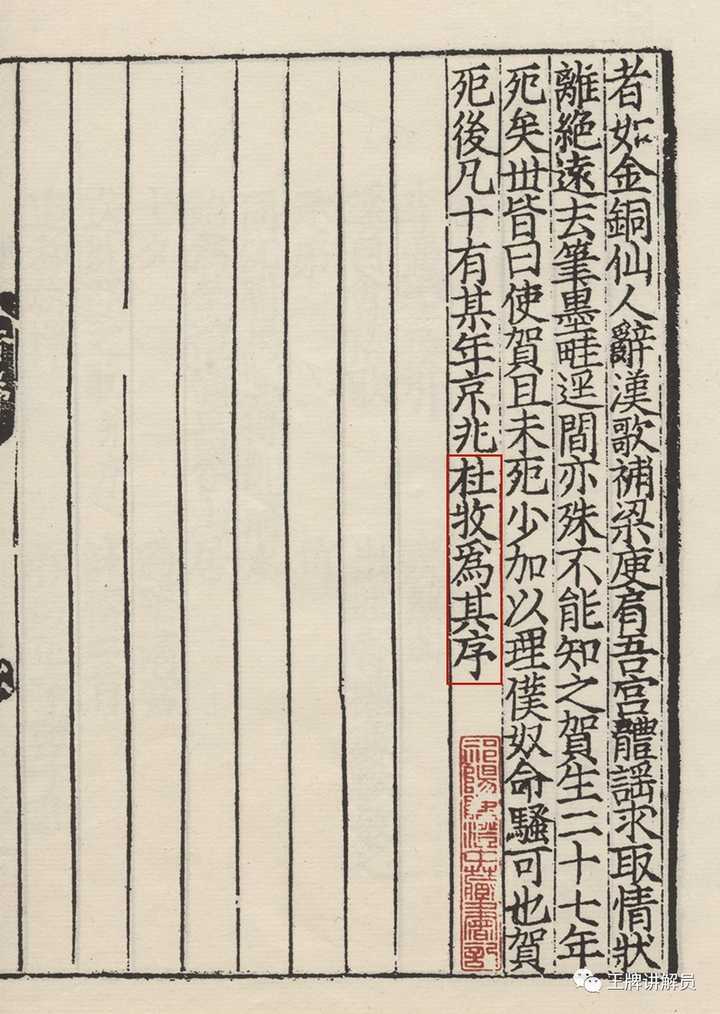 者如金銅仙人辭漢歌補梁庾肩吾宮體謡求取情狀
離絶遠去筆墨畦逕間亦殊不能知之賀生二十七年
死矣丗皆曰使賀且未死少加以理僕奴命騷可也賀
死後凡十有某年京兆杜牧爲其序
祁陽陳澄中藏書記
王牌讲解员